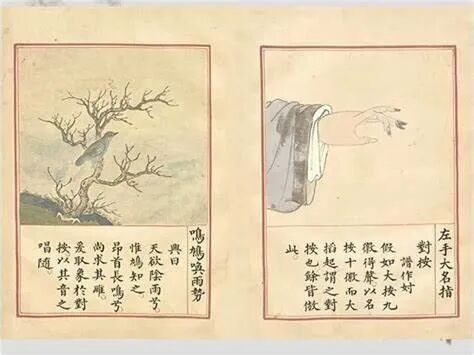 左手大名指
對按
譜作对
假如大按九
徽得聲以名
按十徽而大
掐起謂之對
按也餘皆倣
此
鳴鳩喚雨勢
興曰
天欲陰雨兮
惟鳩知之
昂首長鳴兮
尚求其雌
爰取象於對
按以其音之
唱隨